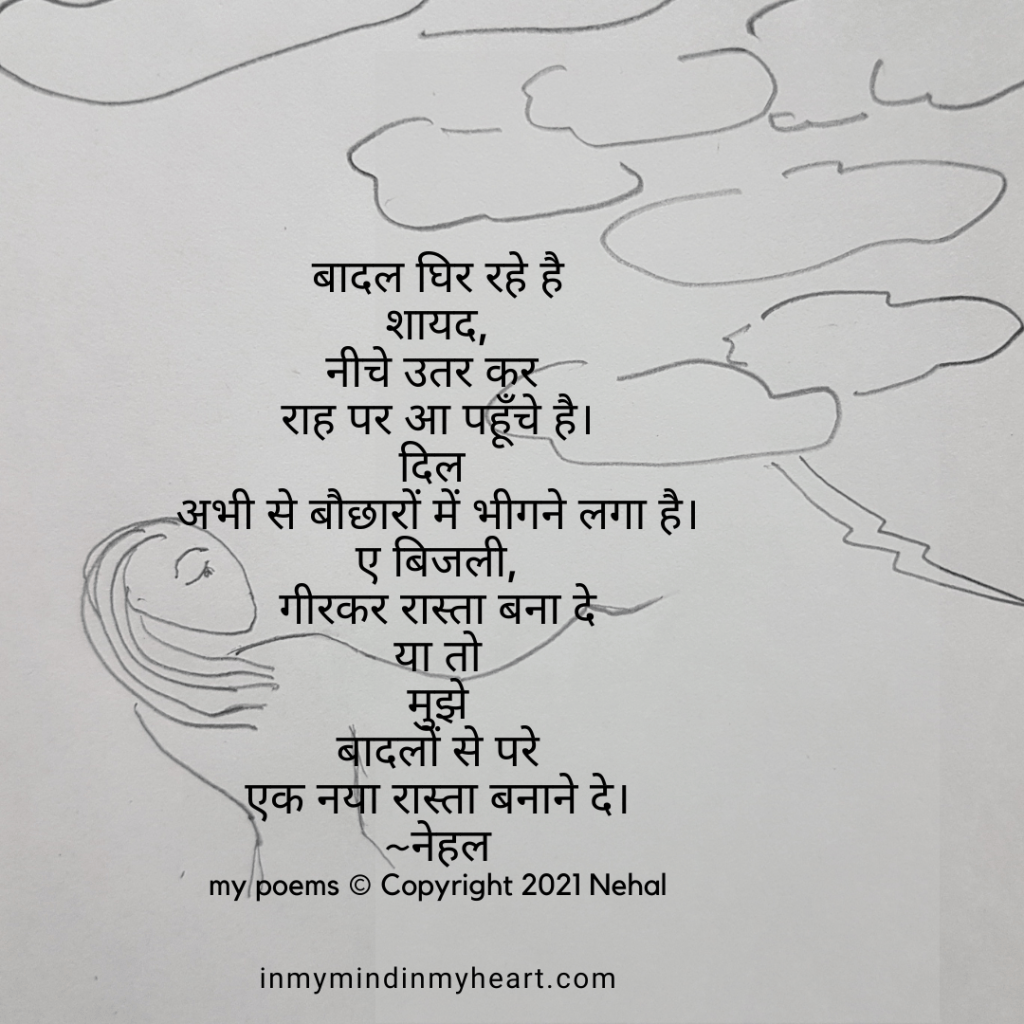 बादल घिर रहे है
शायद,
नीचे उतर कर
राह पर आ पहूँचे है।
दिल
अभी से बौछारों में भीगने लगा है।
ए बिजली,
गीरकर रास्ता बना दे
या तो
मुझे
बादलों से परे
एक नया रास्ता बनाने दे।
~नेहल
my poems © Copyright 2021 Nehal
inmymindinmyheart.com